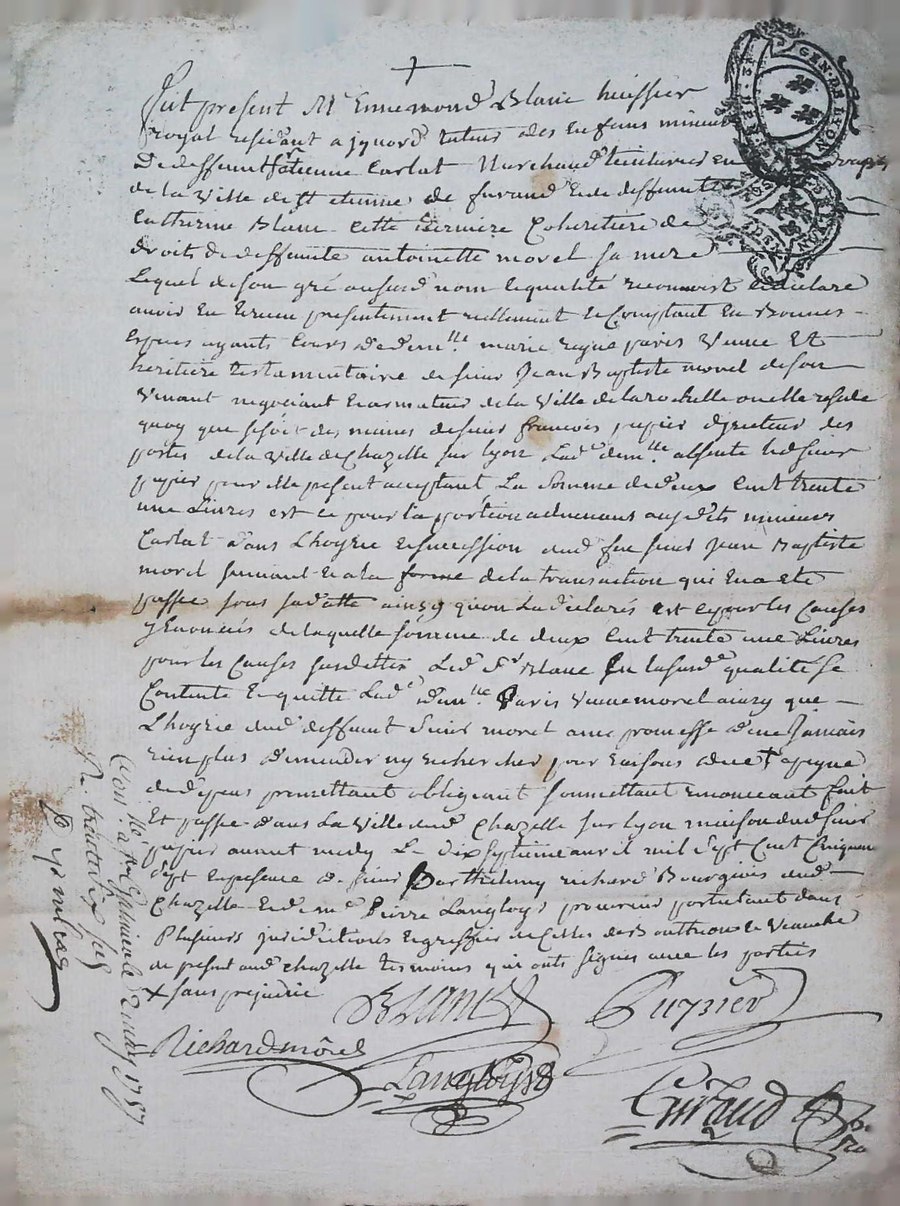 +
GEN. DE LYON
Fut present Me Ennemond Blanc huissier
royal residant a tuteur des Enfans mineurs
de deffunt Sr Etienne Carlat Marchand teinturier En draps
de la Ville de St etienne de furand Et de deffunte
Catherine Blanc cette derniere Coheritiere de
droits de deffunte antoinette morel sa mere
Lequel de son gré audit nom Et qualité reconnoist Et declare
avoir Eu Et receu presentement reellement Et Comptant En Bonnes
Especes ayants Cours de demlle marie paris Veuve Et
heritiere testamentaire de sieur Jean Baptiste morel de son
Vivant negociant Et armateur de la Ville de la rochelle ou elle reside
quoy que ce soit des mains de sieur francois pupier directeur des
postes de la Ville de Chazelle sur lyon Lade demlle absente led sieur
pupier pour elle present acceptant La Somme de deux Cent trente
une Livres est ce pour la portion advenant ausdits mineurs
Carlat dans Lhoyrie Et succession dud feu sieur Jean Baptiste
morel suivant Et a la forme de la transaction qui En a Eté
passée sous sa datte ainsy quon La declarés est ce pour les Causes
y Enoncés de laquelle somme de deux Cent trente une Livres
pour les Causes susdittes Led Sr Blanc En la susde qualité se
Contente Et quitte Lade demlle Paris Veuve morel ainsy que
Lhoyrie dud deffunt Sieur morel avec promesse de ne Jamais
rien plus demander ny rechercher pour raisons de ce † a peyne
de depens promettant obligeant soumettant renonceant fait
Et passé dans La Ville dud Chazelle sur Lyon maison dud sieur
pupier avant midy Le dix septieme avril mil sept Cent Cinquante
sept En presence de sieur Barthelemy richard Bourgeois dud
Chazelle Et de me Pierre Langloys procureur postulant dans
Plusieurs juridictions Et greffier de Celles de
de present aud Chazelle tesmoins qui onts signes avec les parties
† sans prejudice
Blanc
Pupier
Richard môrel
Langloys
Giraud
Con. a St
1757